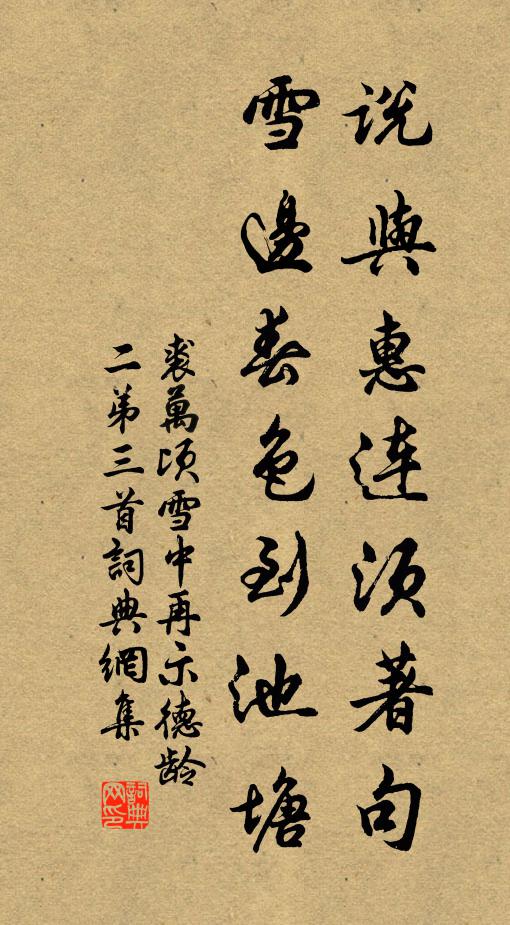 説與惠连须著句
雪邊春色到池塘
裘萬頃雪中再示德龄
二弟三首詞典網集
詞典网印